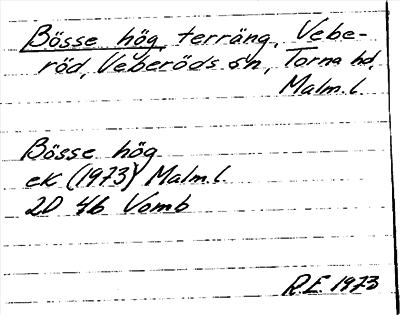 Bösse hög, terräng, Vebe-
röd, Veberöds sn, Torna hd,
Malm.l.
Bösse hög
ek (1973) Malm.l.
2D 4b Vomb
R.E. 1973